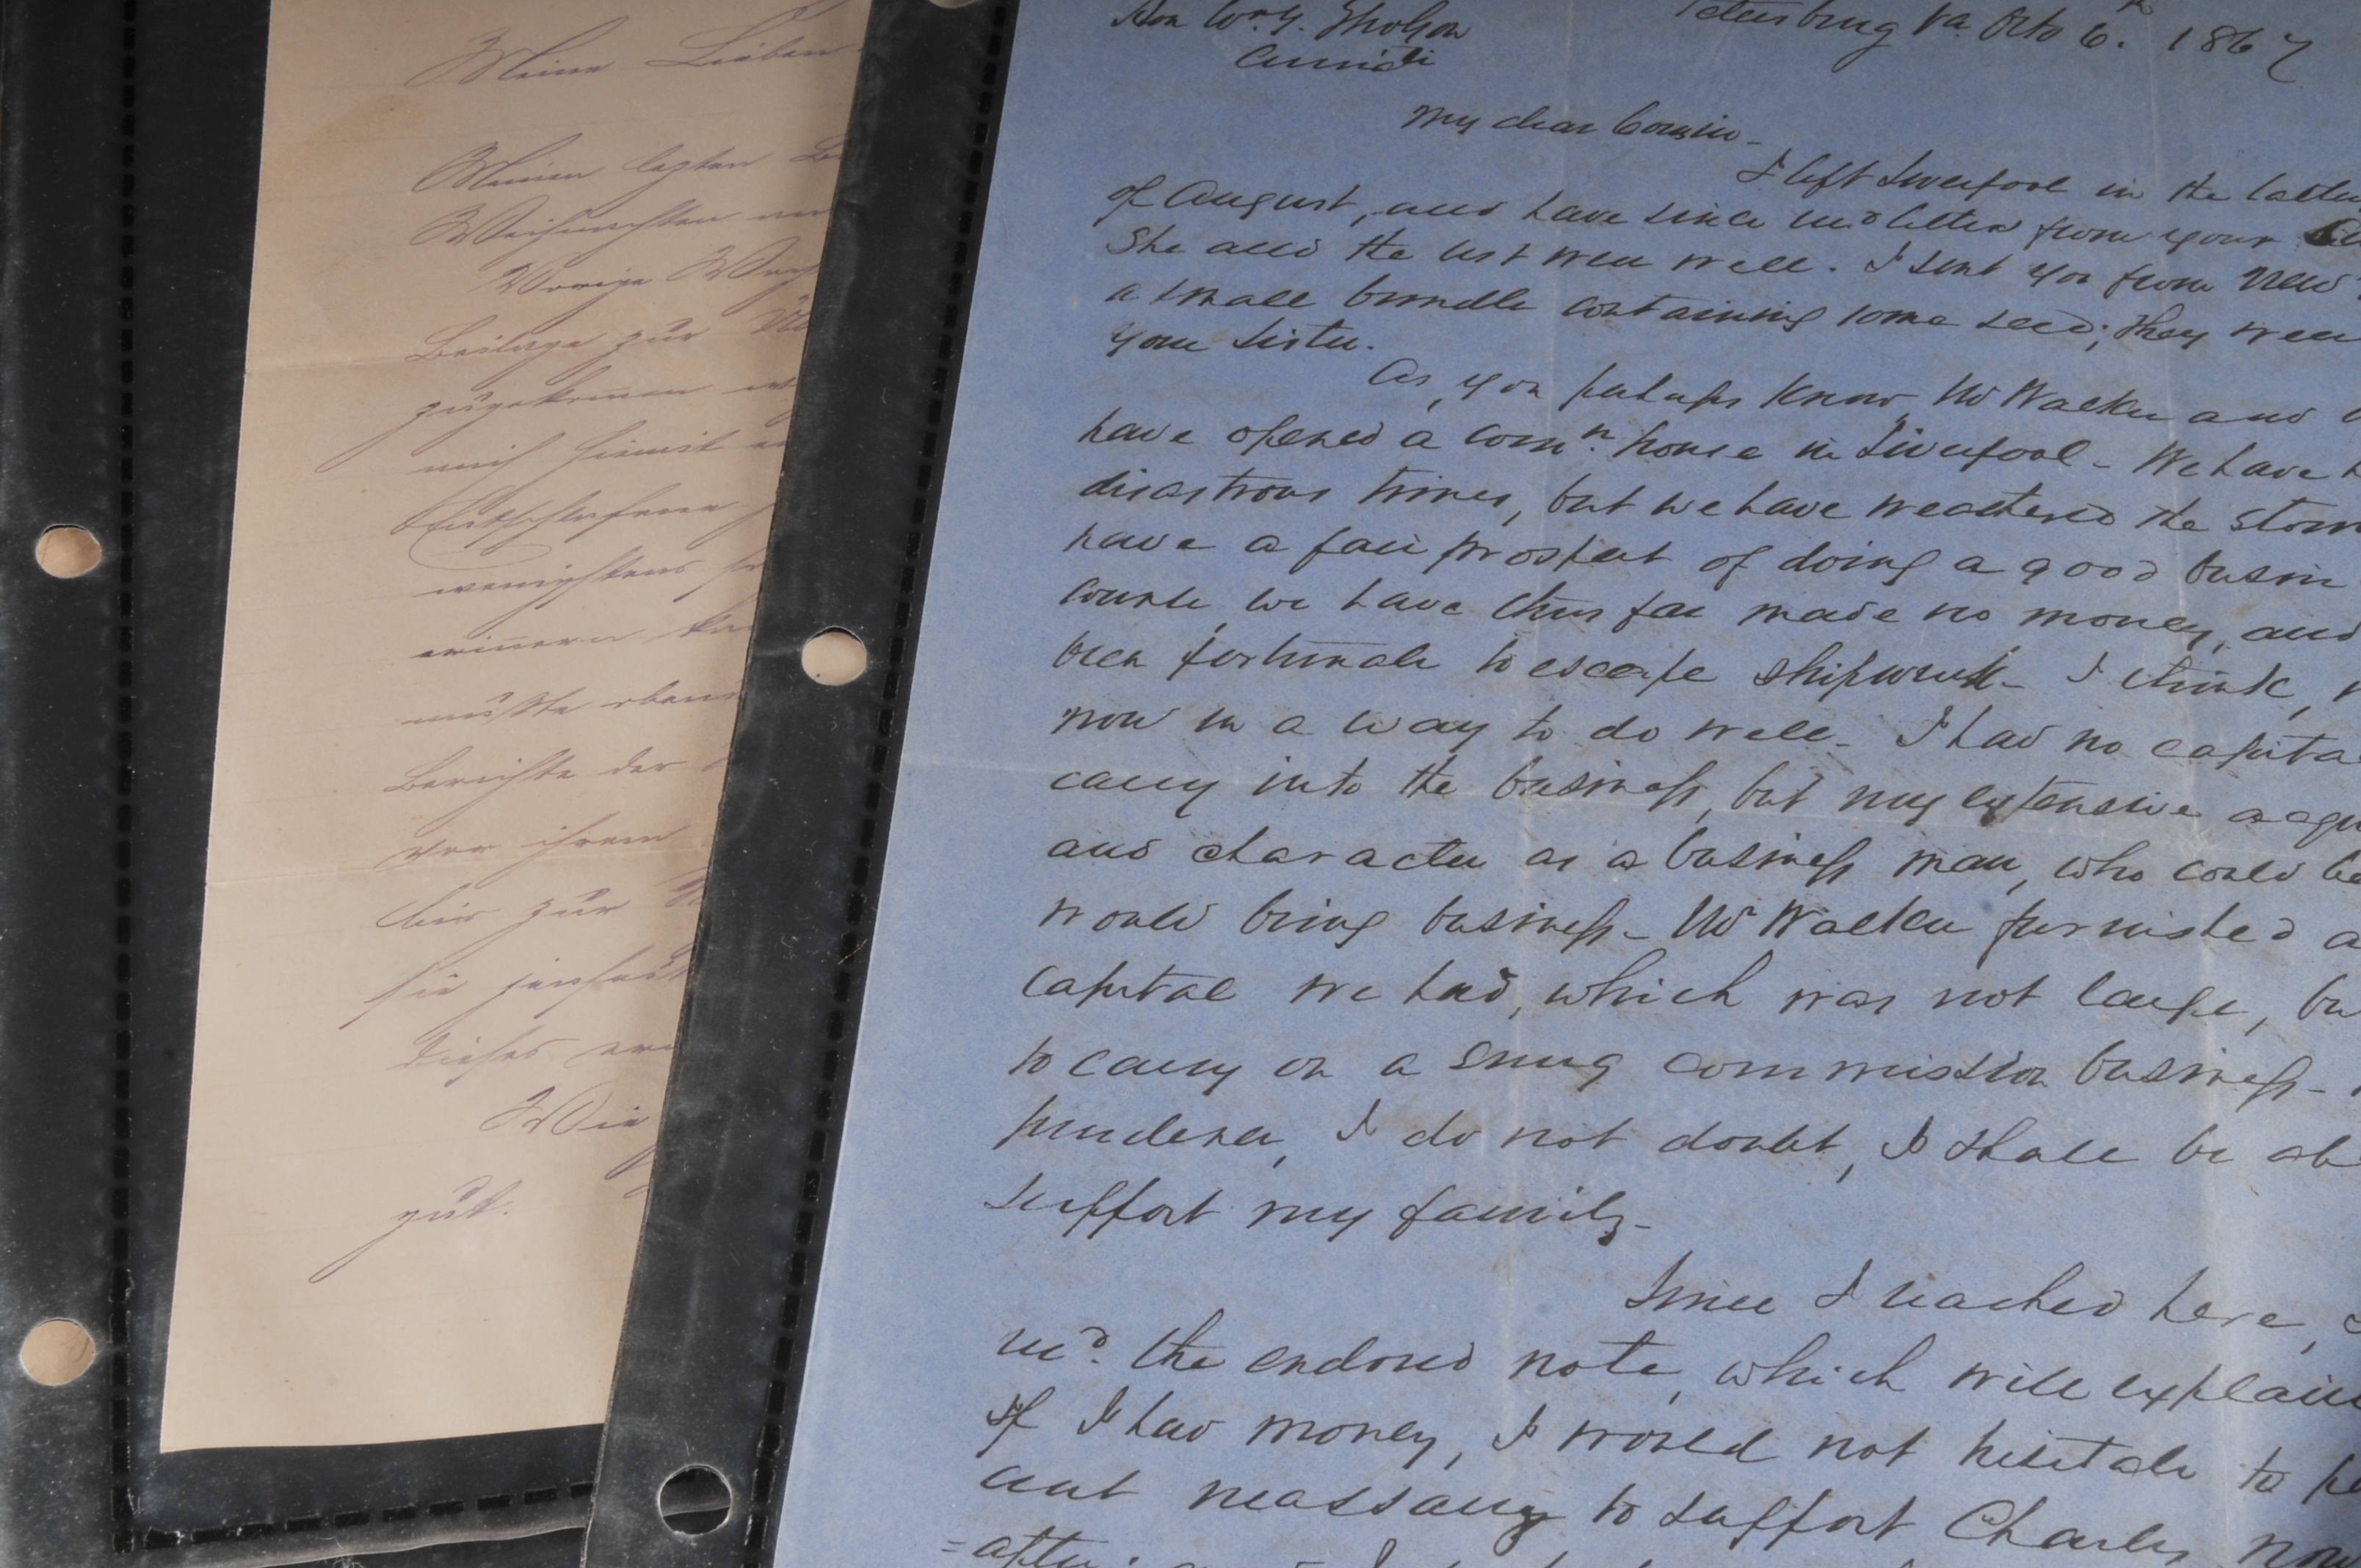 Meine Lieben
Meinen lezten
Weihnachten
Vorige
Beilage zur
zugekom̄en
mich hiemit
Entschlafene
wenigstens
erin̄ern
müsste
Berichte der
vor ihrem
bis zur
sie
dieses
Wie
gut.
Hon Wm Y. Gholson
Petersburg Va. Octo 6th. 1867
Cincinati
My dear Cousin -
I left Liverpool in the latter
of August, and have since recd letter from your
She and the rest were well. I sent you from New
a small bundle containing some seed; they were
your sister.
As you perhaps know, Mr Walker and
have opened a comn. house in Liverpool - We have
disastrous times, but we have weathered the storm
have a fair prospect of doing a good busin
course, we have thus far made no money, and
been fortunate to escape shipwreck - I think,
now in a way to do well - I had no capita
carry into the business, but my extensive acqu
and character as a business man, who could
would bring business - Mr Walker furnished
capital we had, which was not large, bu
to carry on a snug commission business -
prudence, I do not doubt, I shall be ab
support my family -
Since I reached here,
recd. the enclosed note, which will explain
If I had money, I would not hesitate to
amt necessary to support Charley